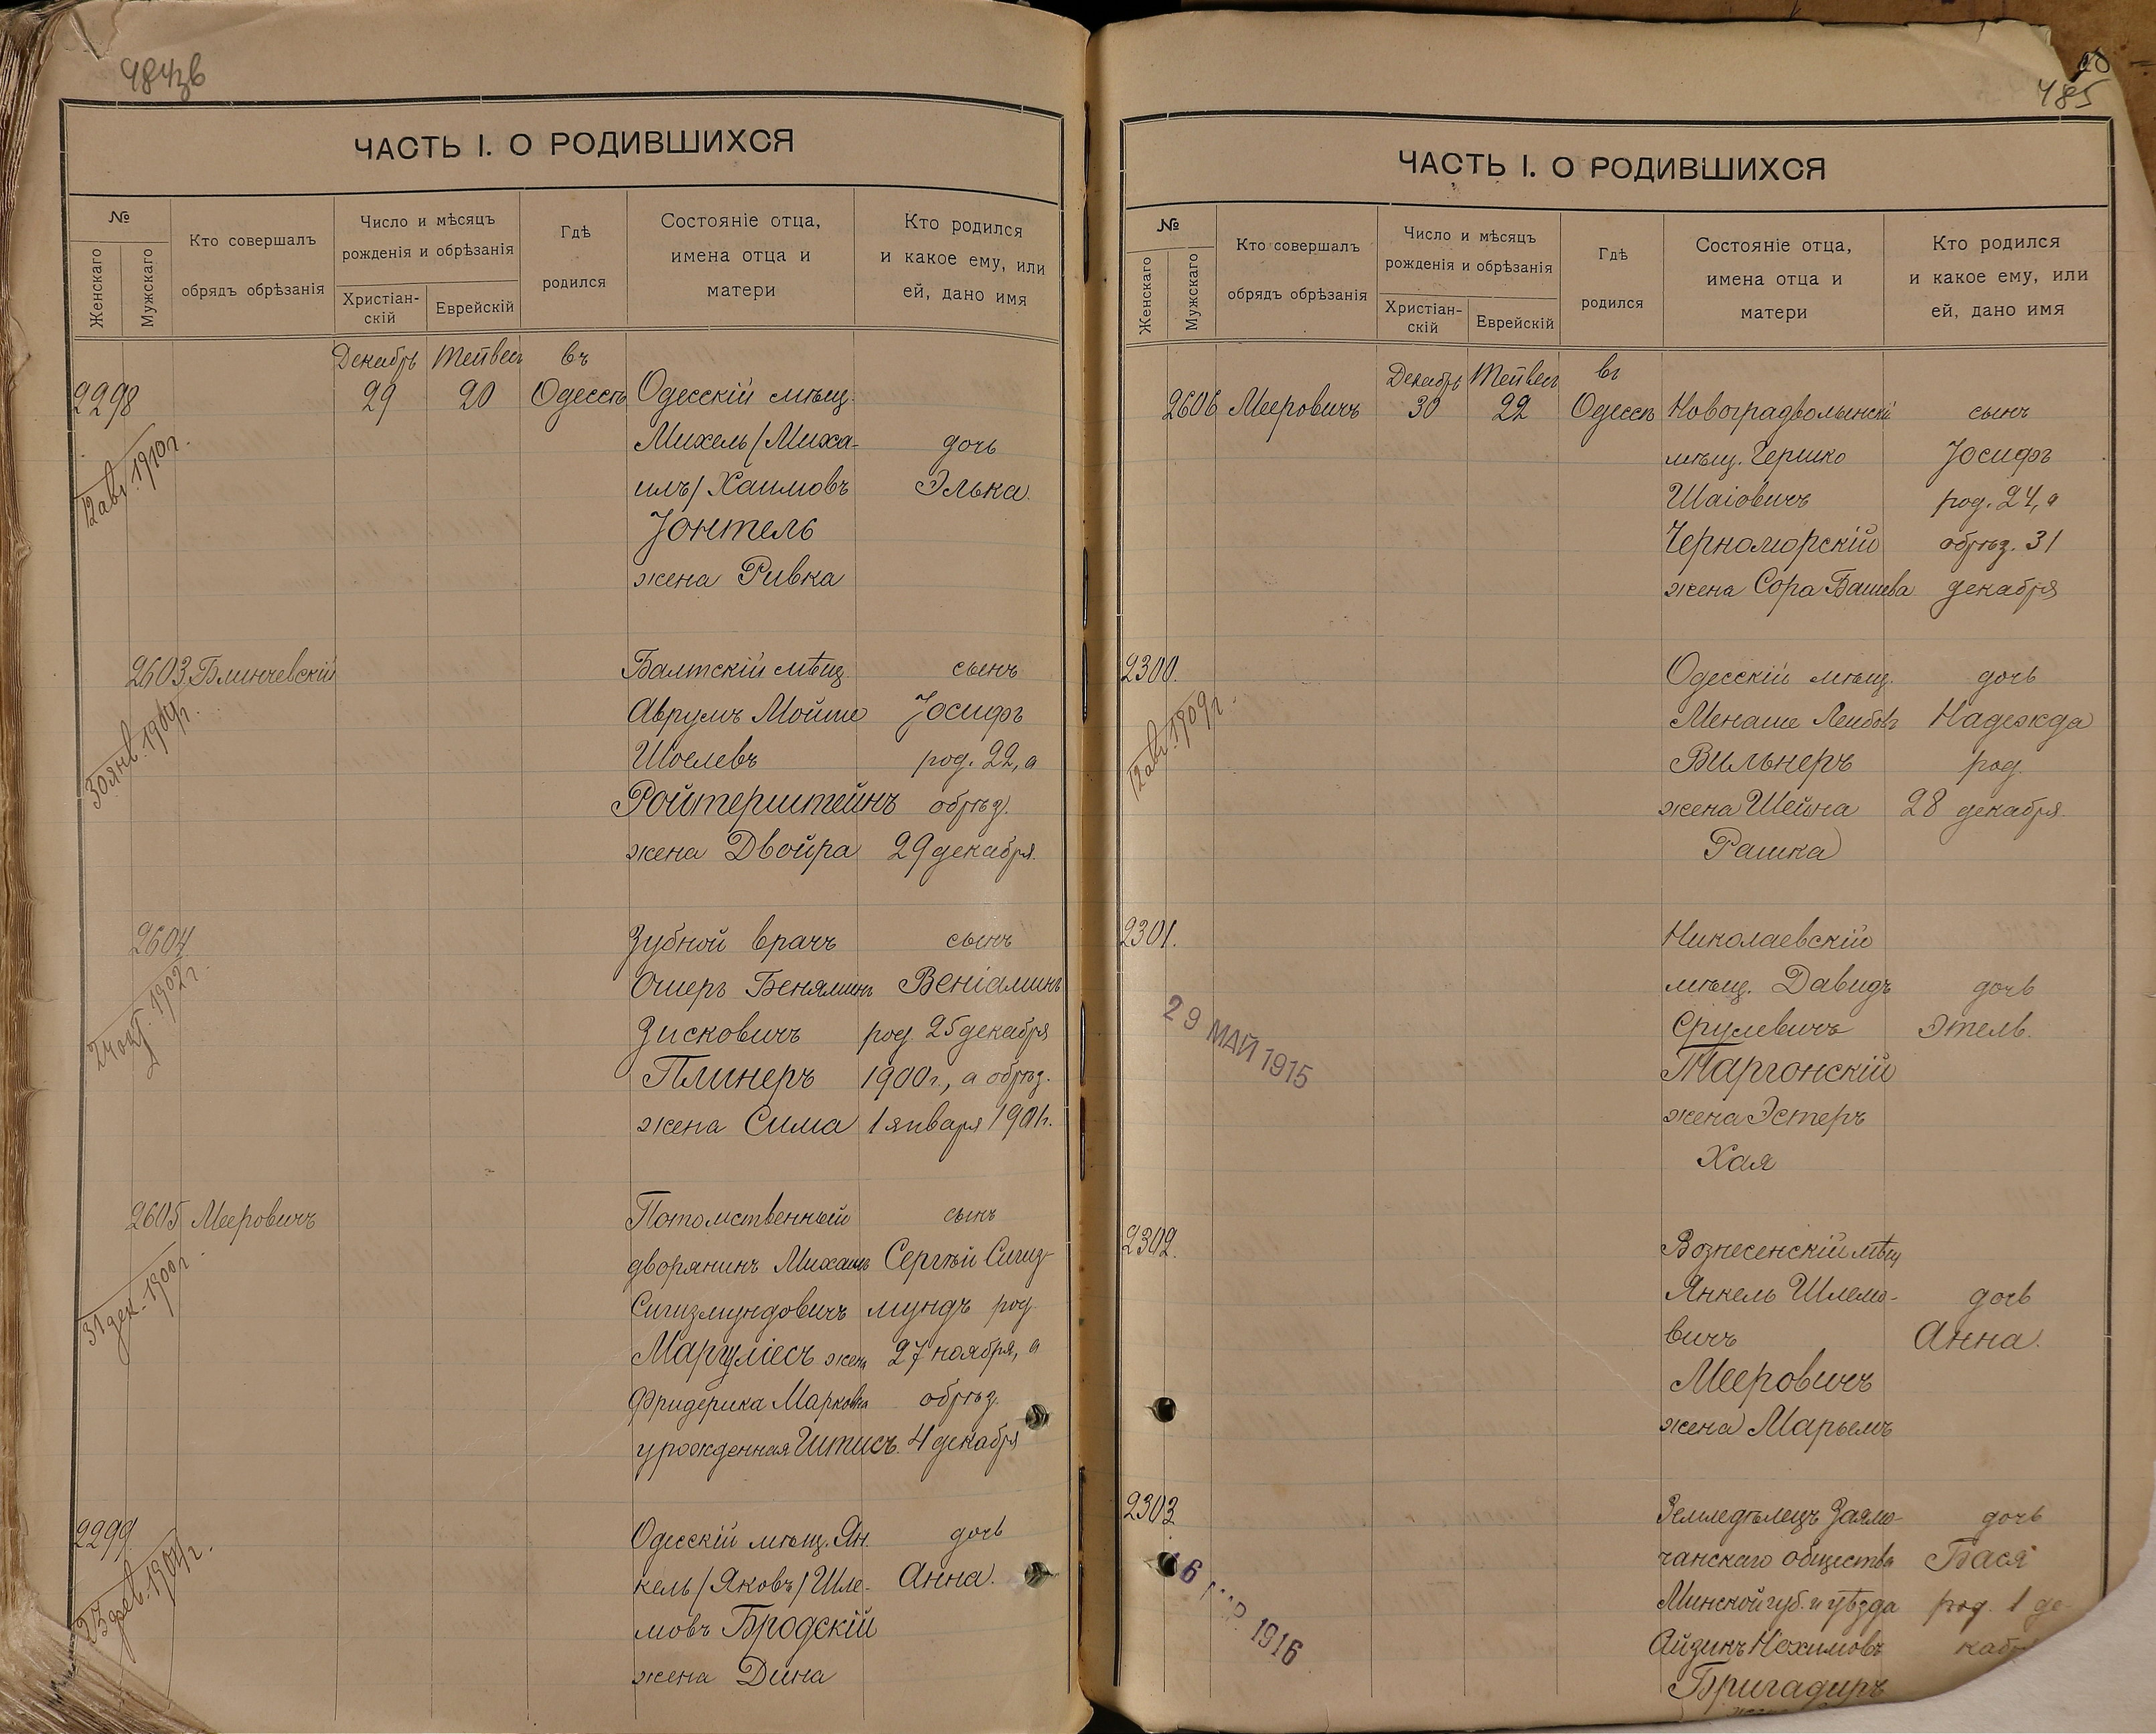 484зв
ЧАСТЬ I. О РОДИВШИХСЯ
№
Женскаго
Мужскаго
Кто совершалъ
обрядъ обрѣзанія
Число и мѣсяцъ
рожденія и обрѣзанія
Христіан-
скій
Еврейскій
Гдѣ
родился
Состояніе отца,
имена отца и
матери
Кто родился
и какое ему, или
ей, дано имя
Декабрь Тейвес въ
2298 29 20 Одессѣ Одесскій мѣщ.
12 авг. 1910 г.
Михель (Миха- дочь
илъ) Хаимовъ Элька.
Іонтель
жена Ривка
2603 Блинчевскій Балтскій мѣщ. сынъ
30 янв. 1904 г.
Аврумъ Мойше Іосифъ
Шоелевъ род. 22, а
Ройтерштейнъ обрѣз.
жена Двойра 29 декабря.
2604 Зубной врачъ сынъ
24 окт. 1902 г.
Ошеръ Беняминъ Веніаминъ
Зисковичъ род. 25 декабря
Плинеръ 1900 г., а обрѣз.
жена Сима 1 января 1901 г.
2605 Мееровичъ Потомственный сынъ
31 дек. 1900 г.
дворянинъ Михаилъ Сергѣй Сигиз-
Сигизмундовичъ мундъ род.
Маргуліесъ жена 27 ноября, а
Фридерика Марковна обрѣз.
урожденная Итисъ. 4 декабря
2299 Одесскій мѣщ. Ян- дочь
23 фев. 1904 г.
кель (Яковъ) Шле- Анна.
мовъ Бродскій
жена Дина
485
ЧАСТЬ I. О РОДИВШИХСЯ
№
Женскаго
Мужскаго
Кто совершалъ
обрядъ обрѣзанія
Число и мѣсяцъ
рожденія и обрѣзанія
Христіан-
скій
Еврейскій
Гдѣ
родился
Состояніе отца,
имена отца и
матери
Кто родился
и какое ему, или
ей, дано имя
Декабрь Тейвес въ
2606 Мееровичъ 30 22 Одессѣ Новоградволынскій сынъ
мѣщ. Гершко Іосифъ
Шаіовичъ род. 24, а
Черноморскій обрѣз. 31
жена Сора Башева декабря
2300. Одесскій мѣщ. дочь
12 авг. 1909 г.
Менаше Лейбовъ Надежда
Вильнеръ род.
жена Шейна 28 декабря.
Рашка
2301. Николаевскій
мѣщ. Давидъ дочь
29 МАЙ 1915
Срулевичъ Этель.
Маргонскій
жена Эстеръ
Хая
2302. Вознесенскій мѣщ.
Янкель Шлемо- дочь
вичъ Анна.
Мееровичъ
жена Марьемъ
2303 Земледѣлецъ Заямо- дочь
чанскаго общества Бася
Минской губ. и уѣзда род. 1 де-
1916
Айзикъ Нохимовъ
Бригадиръ